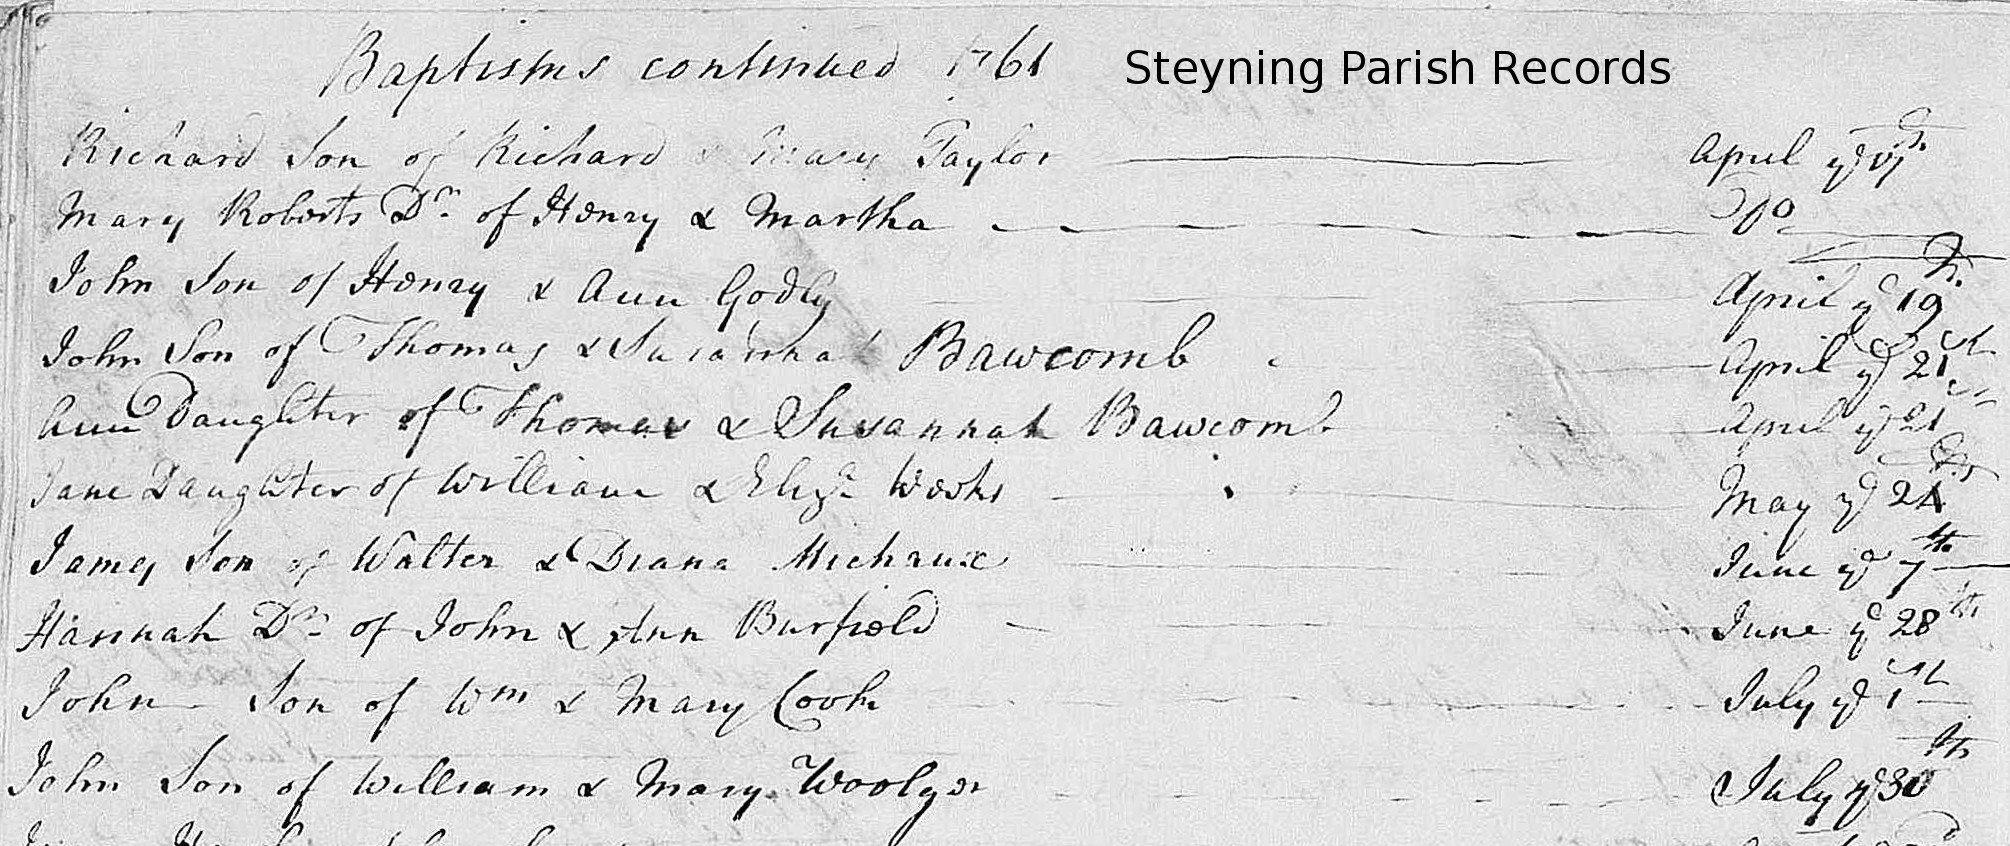 Baptisms continued 1761 Steyning Parish Records
Richard Son of Richard & Mary Taylor April ye
Mary Roberts Dr. of Henry & Martha Do
John Son of Henry & Ann Godly April ye 19th
John Son of Thomas & Susannah Bawcomb April ye 21st
Ann Daughter of Thomas & Susannah Bawcomb April ye 21st
Jane Daughter of William & Eliza Weeks May ye 24th
James Son of Walter & Diana June ye 7th
Hannah Dr. of John & Ann Burfield June ye 28th
John Son of Wm & Mary Cook July ye 1st
John Son of William & Mary Woolger July ye 30th